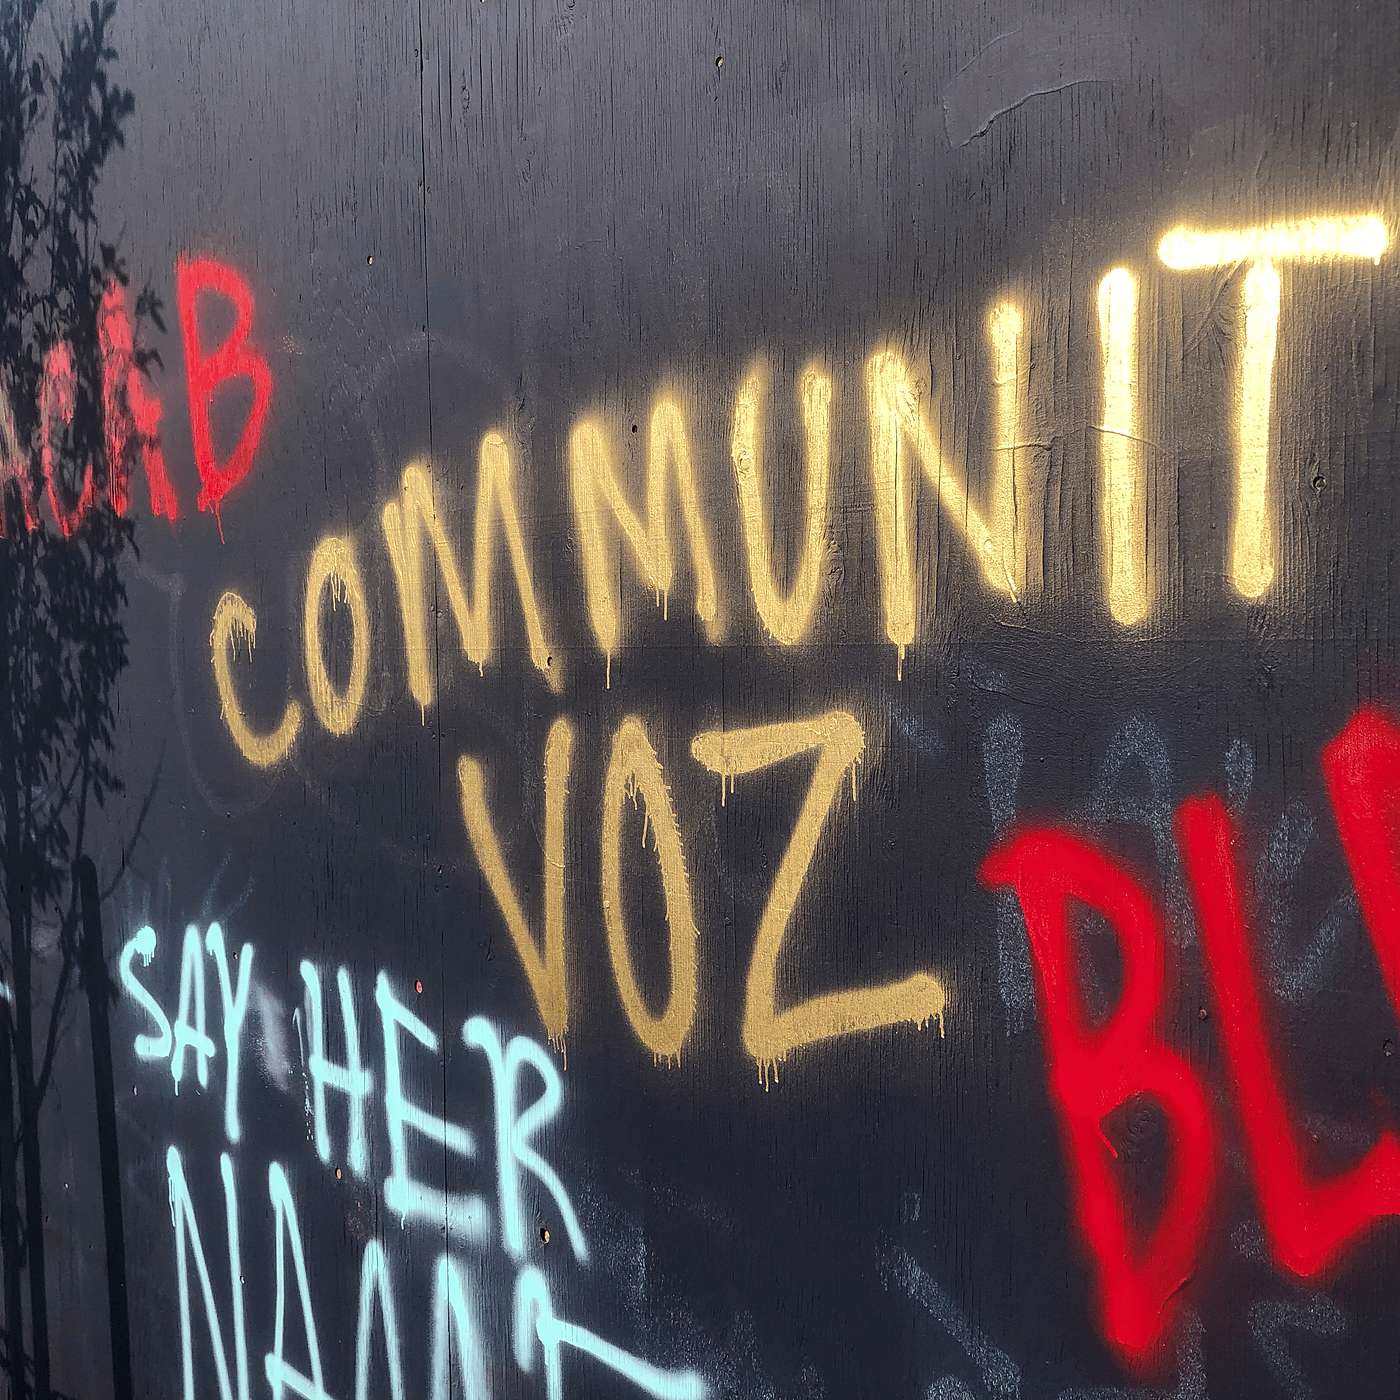 ACAB
COMMUNIT
VOZ
BL
SAY HER
NAME